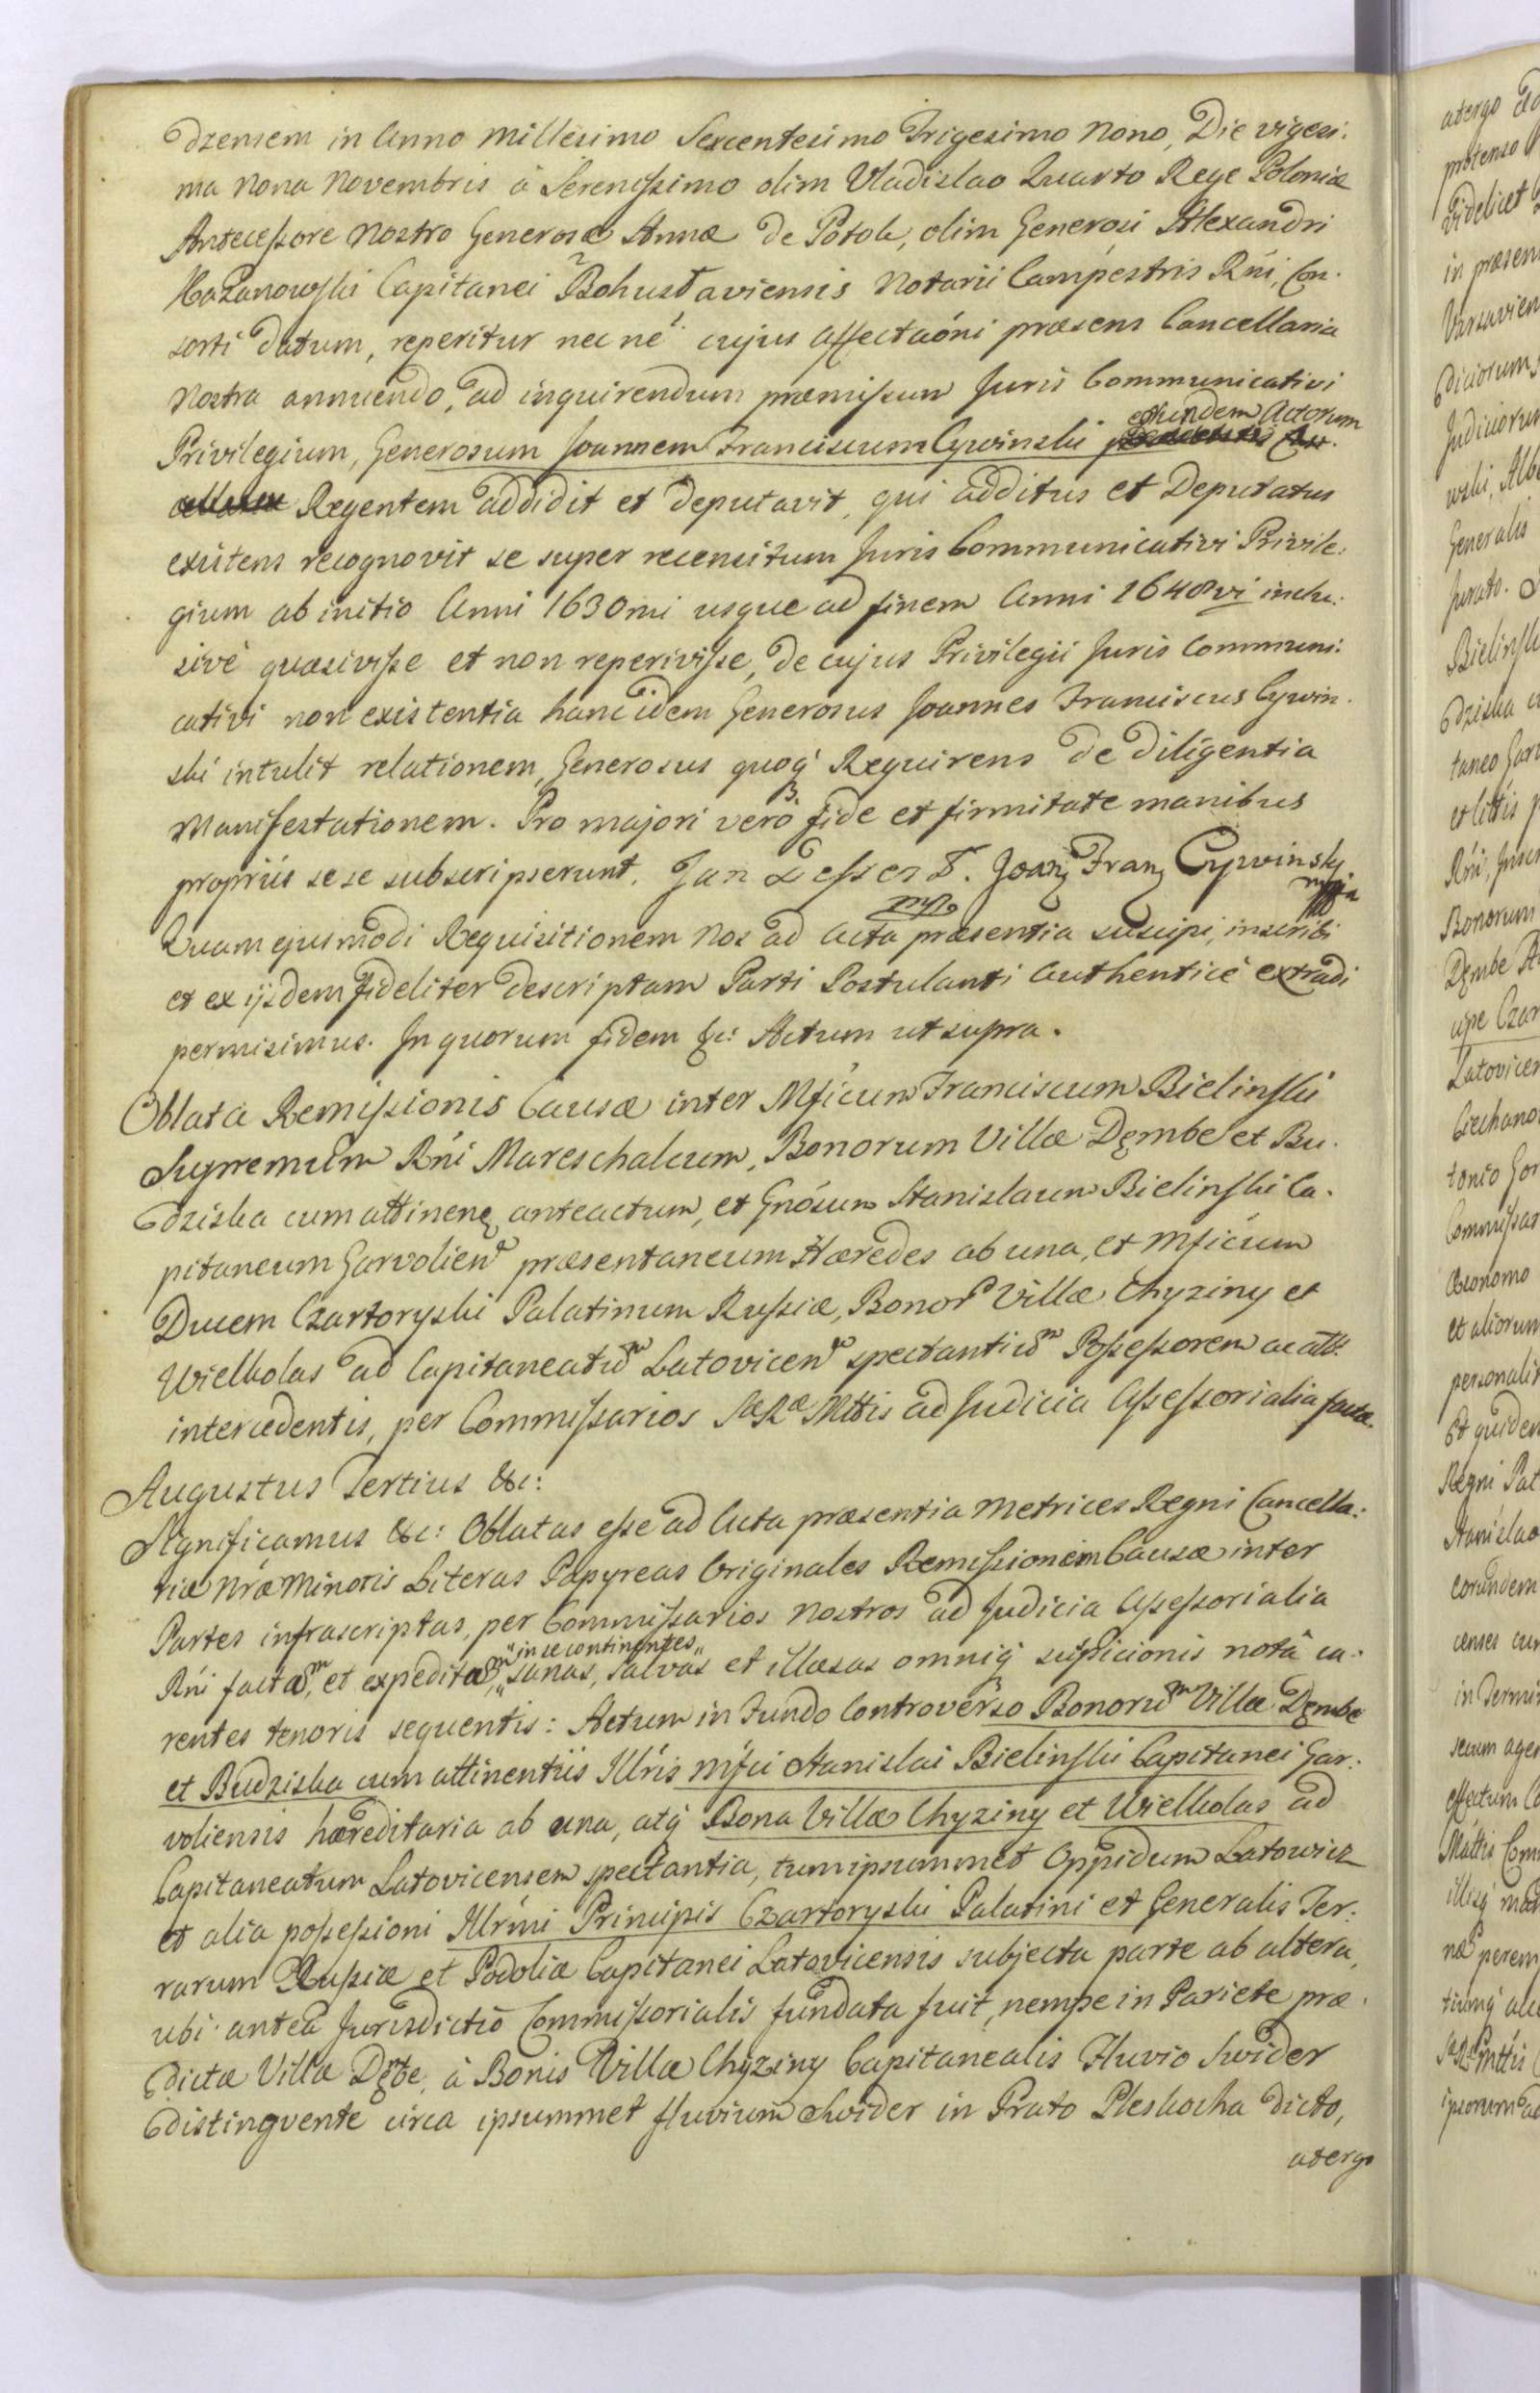 dzensem in Anno Millesimo Sexcentesimo Trigesimo Nono, Die vigesi:
ma Nona Novembris à Serenissimo olim Vladislao Quarto Rege Poloniæ
Antecessore Nostro Generosæ Annæ de Potok, olim Generosi Alexandri
Kazanowski Capitanei Bohuslaviensis Notarii Campestris Rńi, Con-
sorti datum, reperitur nec nè? cujus affectaóni præsens Cancellaria
Nostra annuendo, ad inquirendum præmissum Juris Communicativi
Privilegium, Generosum Joannem Franciscum Cywinski eorundem Actorum
Regentem addidit et deputavit, qui additus et Deputatus
existens recognovit se super recensitum Juris Communicativi Privile:
gium ab initio Anni 1630mi usque ad finem Anni 1648vi inclu:
sivè quæsivisse et non reperivisse, de cujus Privilegii Juris Communi:
cativi non existentia hanc idem Generosus Joannes Franciscus Cywin-
ski intulit relationem, Generosus quoq́ Requirens de diligentia
Manifestationem. Pro majori verò fide et firmitate manibus
propriis sese subscripserunt. Jan Lessen T. Joan Franz Cywinsky
mp mppria
Quam ejusmodi Requisitionem Nos ad Acta præsentia suscipi, inscribi
et ex ijsdem fideliter descriptam Parti Postulanti Authenticè extradi
permisimus. In quorum fidem &c: Actum ut supra.
Oblata Remissionis Causæ inter Mficum Franciscum Bielinski
Supremum Rńi Mareschalcum, Bonorum Villæ Dębe et Bu-
dziska cum attinenę anteactum, et Gnósum Stanislaum Bielinski Ca-
pitaneum Garvolien præsentaneum Hæredes ab una, et Mficum
Ducem Czartoryski Palatinum Russiæ, Bonor Villæ Chyziny et
Wielkolas ad Capitaneatum Latovicen spectantium Possessorem ac altt
intercedentis, per Commissarios SæRæ Mttis ad Judicia Assessorialia factæ.
Augustus Tertius &c:
Significamus &c: Oblatas esse ad Acta præsentia Metrices Regni Cancella:
riæ Nræ Minoris Literas Papyreas Originales Remissionem Causæ inter
Partes infrascriptas, per Commissarios Nostros ad Judicia Assessorialia
Rńi factam, et expeditam, in se continentes, sanas, salvas et illæsas omniq́ suspicionis notâ ca-
rentes tenoris sequentis: Actum in Fundo Controverso Bonorum Villæ Dębe
et Budziska cum attinentiis Illris Mfci Stanislai Bielinski Capitanei Gar:
voliensis hæreditaria ab una, atq́ Bona Villæ Chyziny et Wielkolas ad
Capitaneatum Latovicensem spectantia, tum ipsummet Oppidum Latowicz
et alia possessioni Illrmi Principis Czartoryski Palatini et Generalis Ter:
rarum Russiæ et Podoliæ Capitanei Latovicensis subjecta parte ab altera,
ubi antea Jurisdictio Commissorialis fundata fuit, nempe in Pariete præ-
dictæ Villæ Dębe, à Bonis Villæ Chyziny Capitanealis Fluvio Swider
distingvente circa ipsummet fluvium Swider in Prato Pleskocha dicto,
atergo